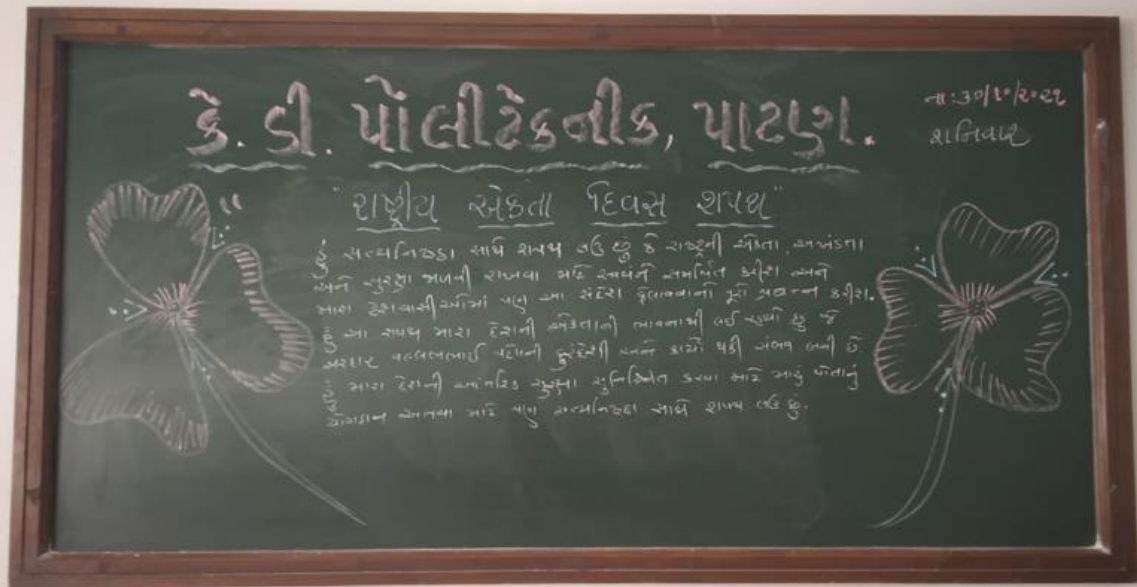 કે. ડી. પોલીટેકનીક, પાટણ.
તા:૩૦/૧૦/૨૦૨૧
શનિવાર
"રાષ્ટ્રીય એકતા દિવસ શપથ"
હું સત્યનિષ્ઠા સાથે શપથ લઉ છું કે રાષ્ટ્રની એકતા, અખંડતા
અને સુરક્ષા જાળવી રાખવા માટે સ્વયંને સમર્પિત કરીશ અને
મારા દેશવાસીઓમાં પણ આ સંદેશ ફેલાવવાનો પૂરો પ્રયત્ન કરીશ.
હું આ શપથ મારા દેશની એકતાની ભાવનાથી લઈ રહ્યો છું જે
સરદાર વલ્લભભાઈ પટેલની દુરંદેશી અને કાર્યો થકી સંભવ બની છે.
હું મારા દેશની આંતરિક સુરક્ષા સુનિશ્ચિત કરવા માટે મારું પોતાનું
યોગદાન આપવા માટે પણ સત્યનિષ્ઠા સાથે શપથ લઉ છું.